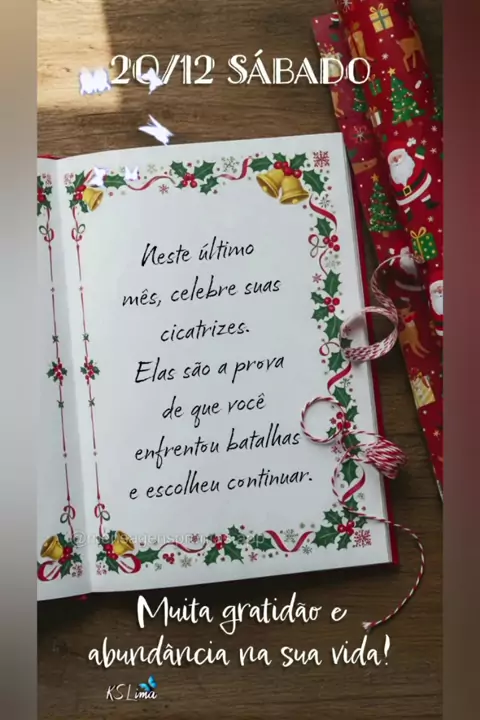 20/12 SÁBADO
Neste último
mês, celebre suas
cicatrizes.
Elas são a prova
de que você
enfrentou batalhas
e escolheu continuar.
Muita gratidão e
abundância na sua vida!
KSLima